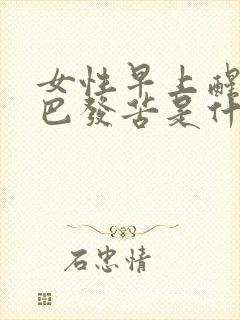 女性早上醒
巴發苦是什
石忠情